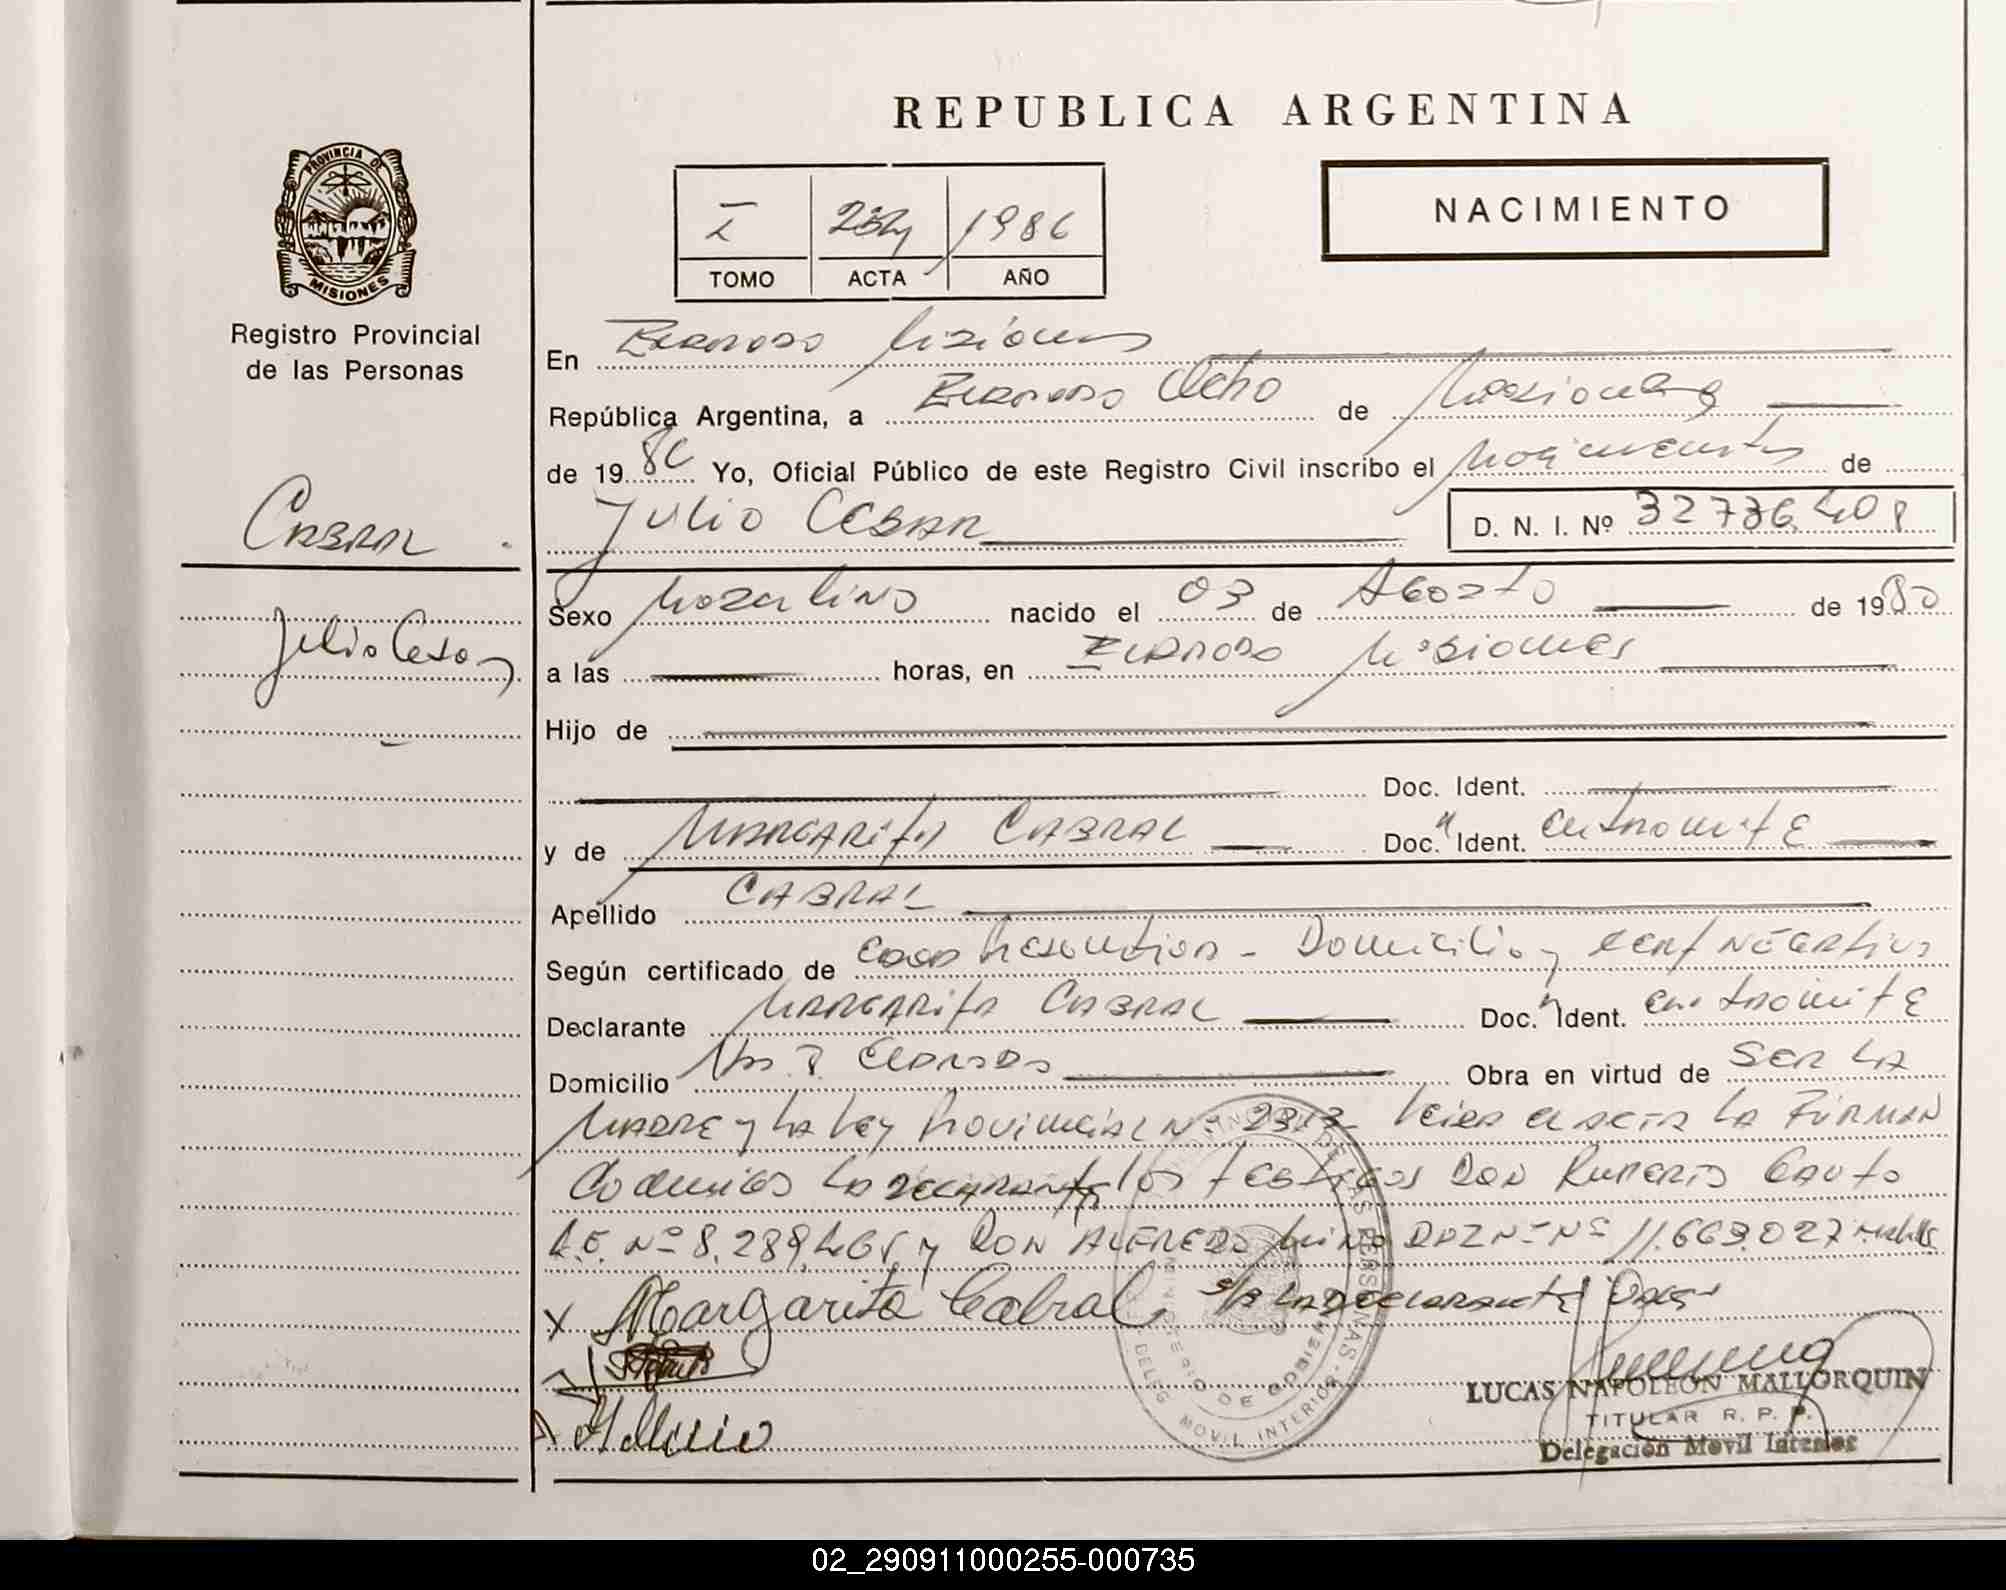 REPUBLICA ARGENTINA
NACIMIENTO
I 1986
TOMO ACTA AÑO
PROVINCIA DE
MISIONES
Registro Provincial
de las Personas
En Eldorado Misiones
República Argentina, a Ocho de
de 1986 Yo, Oficial Público de este Registro Civil inscribo el Nacimiento de
CABRAL
JULIO CESAR D. N. I. Nº
Julio Cesar
Sexo Masculino nacido el 03 de Agosto de 1980
a las horas, en Eldorado Misiones
Hijo de
Doc. Ident.
y de MARGARITA CABRAL Doc. Ident. en tramite
Apellido CABRAL
Según certificado de Domicilio y NEGATIVO
Declarante MARGARITA CABRAL Doc. Ident. en tramite
Domicilio Eldorado Obra en virtud de SER LA
MADRE y LA Ley Provincial Nº Leida el ACTA LA FIRMAN
Conmigo LA DECLARANTE los testigos DON
Nº y DON ALFREDO Nº 11.663.027
X Margarita Cabral LA DECLARANTE
LUCAS NAPOLEON MALLORQUIN
TITULAR R. P. P.
Delegación Movil Interior
MINISTERIO DE GOBIERNO
DELEG. MOVIL INTERIOR
02_290911000255-000735